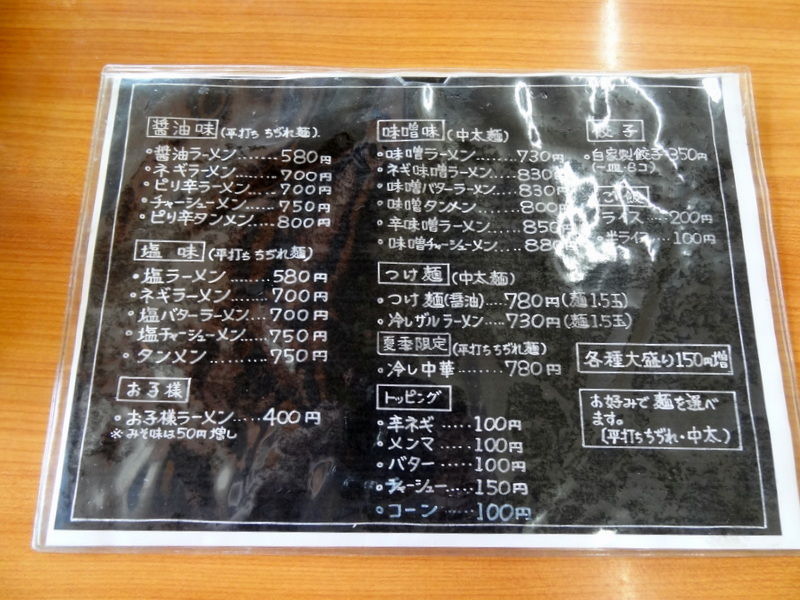 醤油味(平打ち ちぢれ麺)
•醤油ラーメン........580円
•ネギラーメン........700円
•ピリ辛ラーメン........700円
•チャーシューメン......750円
•ピリ辛タンメン........800円
塩 味(平打ち ちぢれ麺)
•塩ラーメン........580円
•ネギラーメン........700円
•塩バターラーメン.....700円
•塩チャーシューメン.....750円
•タンメン........750円
お子様
•お子様ラーメン.....400円
※みそ味は50円増し
味噌味(中太麺)
•味噌ラーメン........730円
•ネギ味噌ラーメン.....830円
•味噌バターラーメン.....830円
•味噌タンメン........800円
•辛味噌ラーメン......850円
•味噌チャーシューメン...880円
つけ麺(中太麺)
•つけ麺(醤油)....780円(麺1.5玉)
•冷しザルラーメン....730円(麺1.5玉)
夏季限定(平打ちちぢれ麺)
•冷し中華........780円
トッピング
•辛ネギ.....100円
•メンマ.....100円
•バター.....100円
•チャーシュー.....150円
•コーン.....100円
餃子
•自家製餃子・350円
(一皿・6コ)
ご飯
ライス.....200円
半ライス....100円
各種大盛り150円増
お好みで麺を選べ
ます。
(平打ちちぢれ・中太)